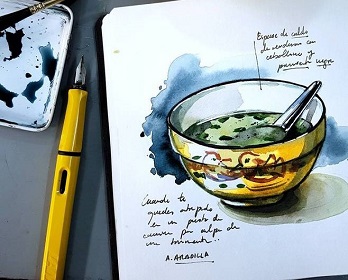 Espuma de caldo
de verduras con
cebollino y
pimienta negra
Cuando te
quedes atrapado
en un puesto de
cuencos por culpa de
una tormenta...
A. ARADILLA